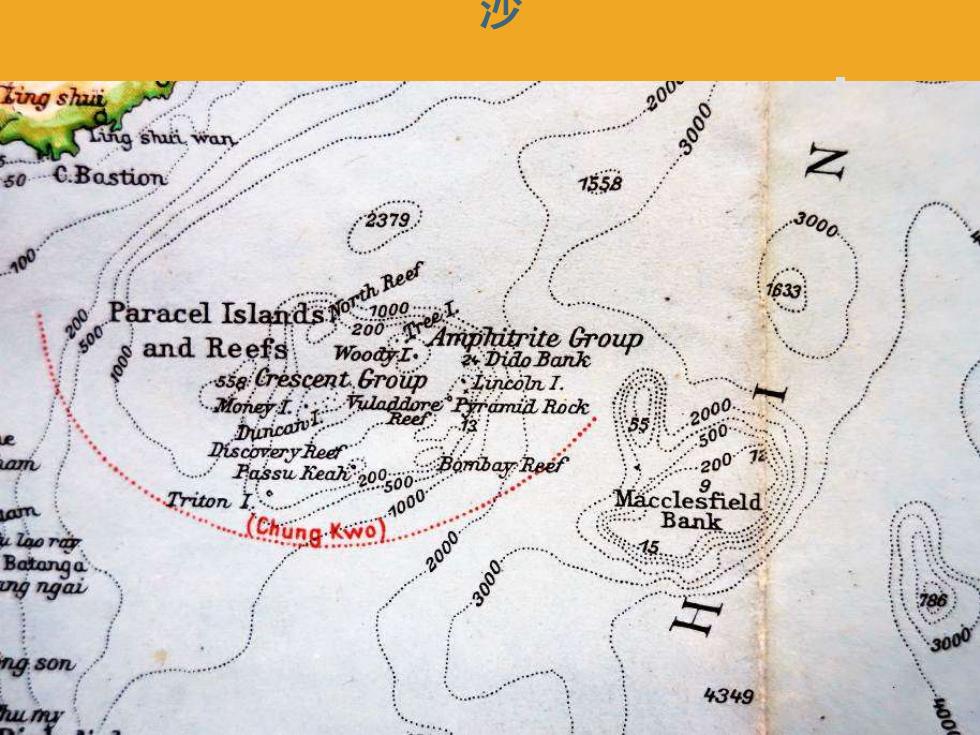 沙
Ting shui
Ting shui wan
50 C.Bastion
100
200
500
1000
2000
3000
1558
N
3000
1633
2379
Paracel Islands
and Reefs
North Reef
1000
200
Tree I.
Woody I.
Amphitrite Group
24 Dido Bank
558 Crescent Group
Lincoln I.
Money I.
Vuladdore
Reef
Pyramid Rock
13
Duncan I.
Discovery Reef
Passu Keah
200
500
1000
Bombay Reef
Triton I.
(Chung Kwo)
55
I
2000
500
200
12
9
Macclesfield
Bank
15
2000
3000
H
4349
786
3000
Batanga
ang ngai
ng son